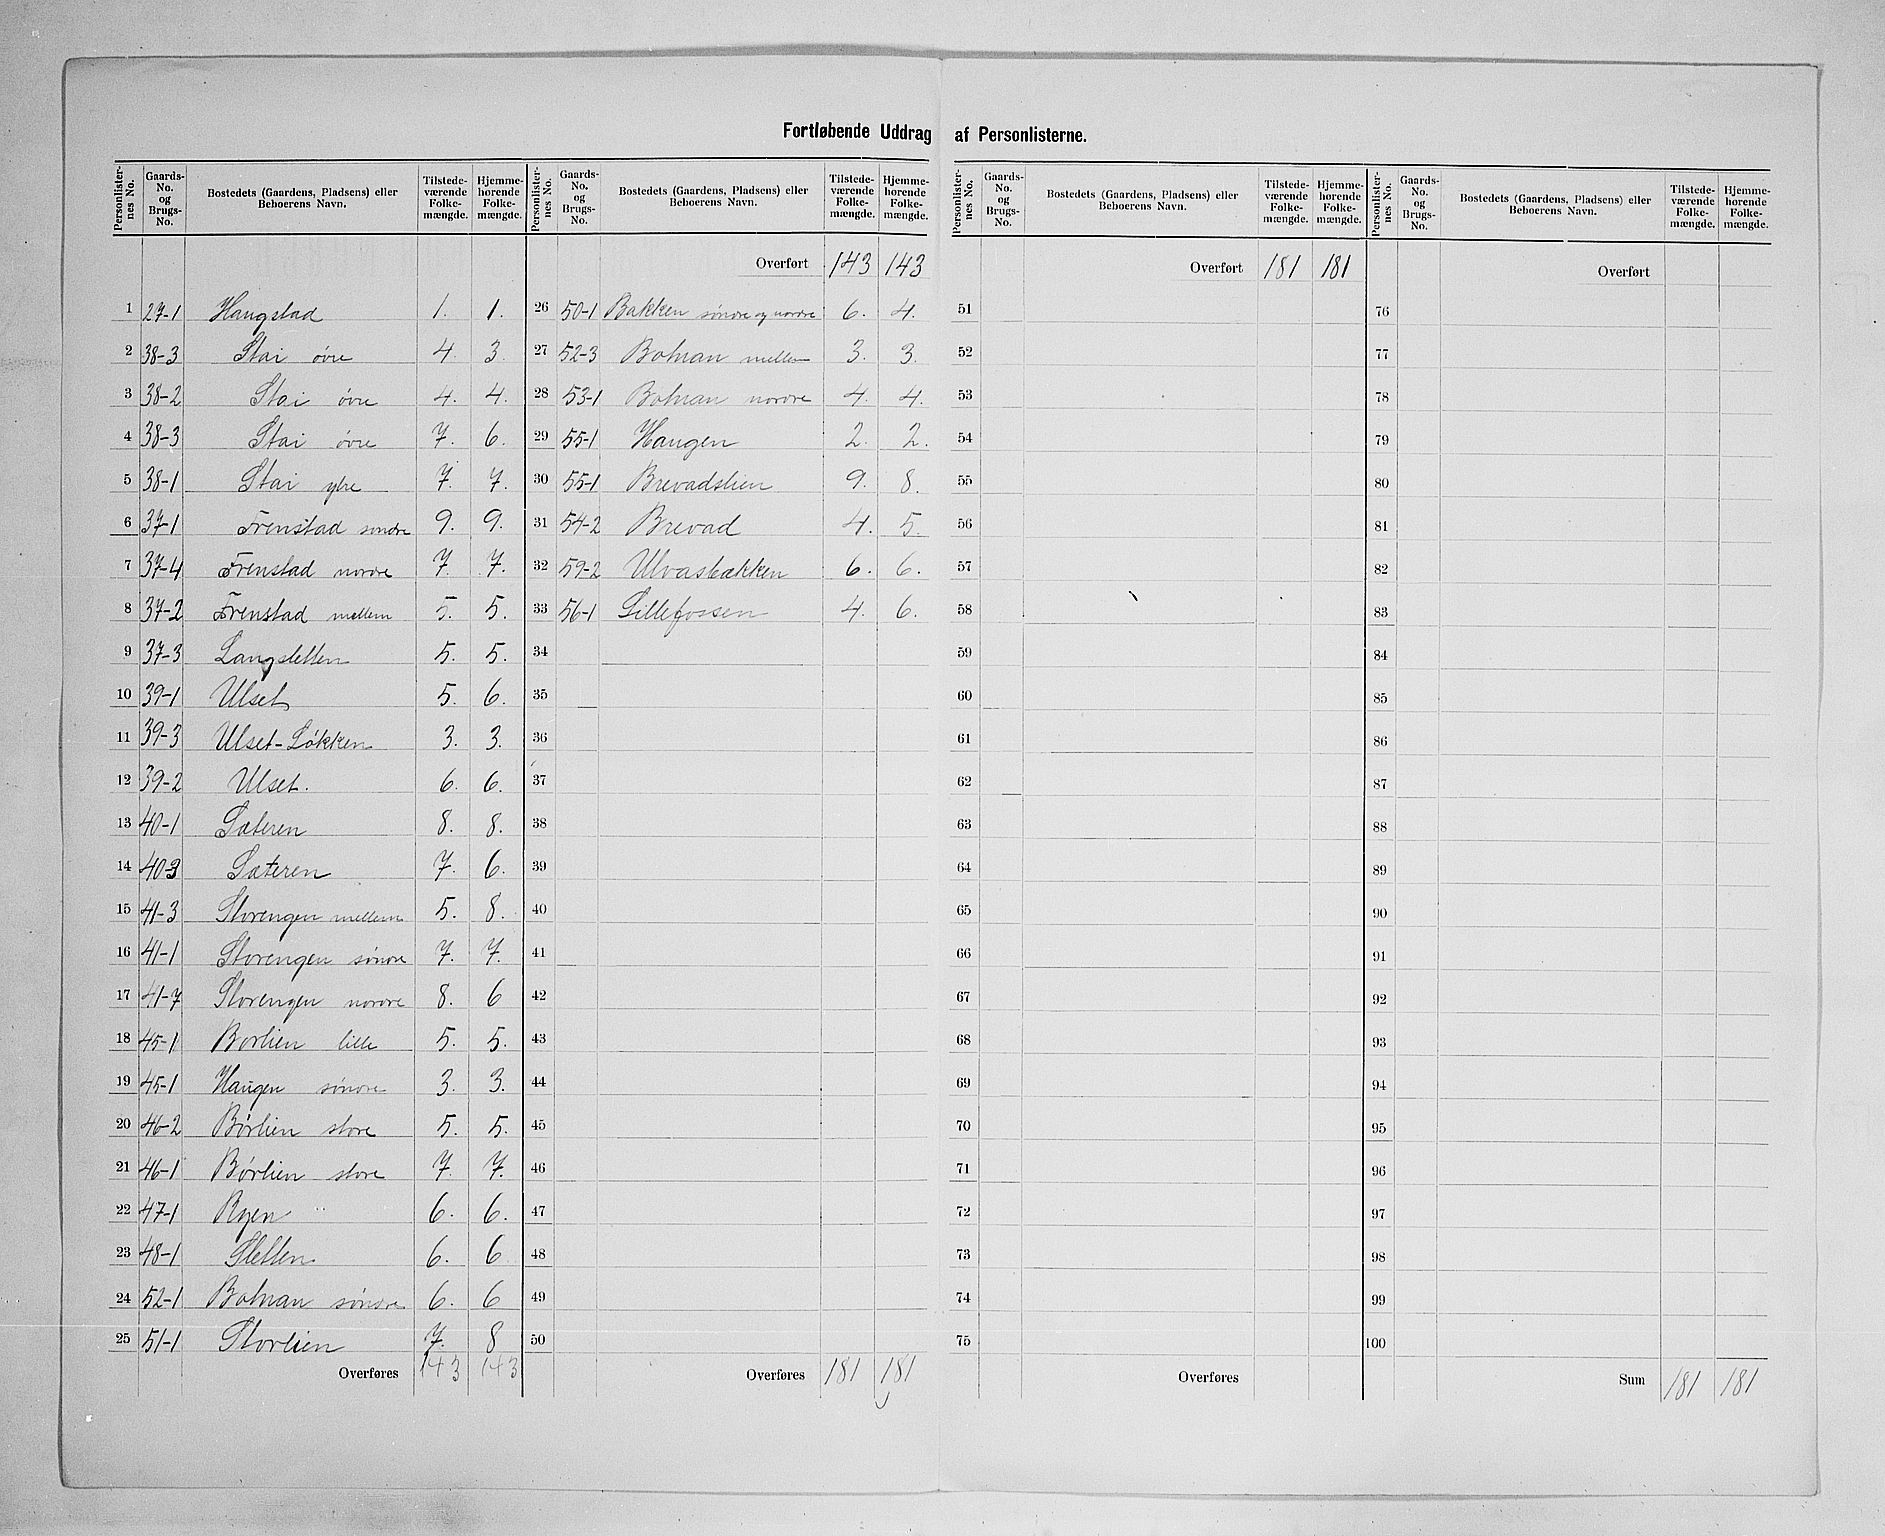 Fortløbende Uddrag af Personlisterne.
Personlister-nes No. | Gaards-No. og Brugs-No. | Bostedets (Gaardens, Pladsens) eller Beboerens Navn. | Tilstede-værende Folke-mængde. | Hjemme-hørende Folke-mængde.
1 27-1 Haugstad 1. 1.
2 38-3 Stai øvre 4. 3.
3 38-2 Stai øvre 4. 4.
4 38-3 Stai øvre 7. 6.
5 38-1 Stai ytre 7. 7.
6 37-1 Frenstad søndre 9. 9.
7 37-4 Frenstad nordre 7. 7.
8 37-2 Frenstad mellem 5. 5.
9 37-3 Langsletten 5. 5.
10 39-1 Ulset 5. 6.
11 39-3 Ulset-Løkken 3. 3.
12 39-2 Ulset. 6. 6.
13 40-1 Sæteren 8. 8.
14 40-3 Sæteren 7. 6.
15 41-3 Storengen mellem 5. 8.
16 41-1 Storengen søndre 7. 7.
17 41-7 Storengen nordre 8. 6
18 45-1 Borlien lille 5. 5.
19 45-1 Haugen søndre 3. 3.
20 46-2 Børlien store 5. 5.
21 46-1 Børlien store 7. 7.
22 47-1 Ryen 6. 6.
23 48-1 Sletten 6. 6
24 52-1 Bolman søndre 6. 6
25 51-1 Storlien 7. 8
Overføres 143 143
Personlister-nes No. | Gaards-No. og Brugs-No. | Bostedets (Gaardens, Pladsens) eller Beboerens Navn. | Tilstede-værende Folke-mængde. | Hjemme-hørende Folke-mængde.
Overført 143 143
26 50-1 Bakken søndre og nordre 6. 4.
27 52-3 Bolman mellem 3. 3.
28 53-1 Bolman nordre 4. 4.
29 55-1 Haugen 2. 2.
30 55-1 Brevadslien 9. 8.
31 54-2 Brevad 4. 5.
32 59-2 Ulvasbækken 6. 6.
33 56-1 Lillefossen 4. 6.
34
35
36
37
38
39
40
41
42
43
44
45
46
47
48
49
50
Overføres 181 181
Personlister-nes No. | Gaards-No. og Brugs-No. | Bostedets (Gaardens, Pladsens) eller Beboerens Navn. | Tilstede-værende Folke-mængde. | Hjemme-hørende Folke-mængde.
Overført 181 181
51
52
53
54
55
56
57
58
59
60
61
62
63
64
65
66
67
68
69
70
71
72
73
74
75
Overføres
Personlister-nes No. | Gaards-No. og Brugs-No. | Bostedets (Gaardens, Pladsens) eller Beboerens Navn. | Tilstede-værende Folke-mængde. | Hjemme-hørende Folke-mængde.
Overført
76
77
78
79
80
81
82
83
84
85
86
87
88
89
90
91
92
93
94
95
96
97
98
99
100
Sum 181 181